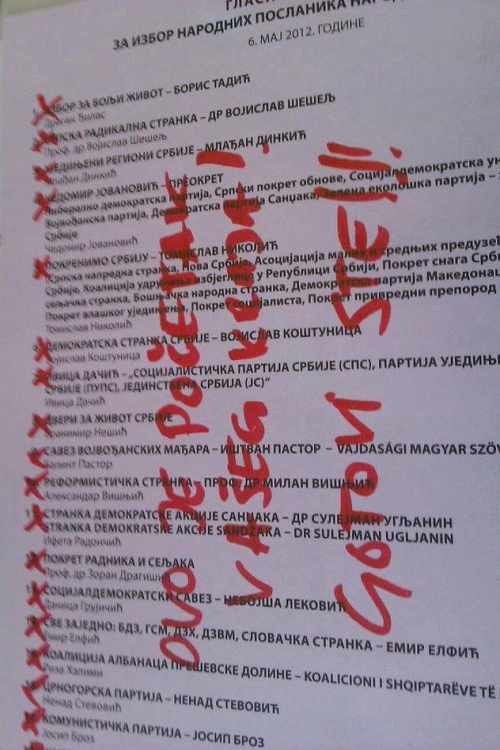 ЗА ИЗБОР НАРОДНИХ ПОСЛАНИКА
6. МАЈ 2012. ГОДИНЕ
ИЗБОР ЗА БОЉИ ЖИВОТ – БОРИС ТАДИЋ
Драган Ђилас
СРПСКА РАДИКАЛНА СТРАНКА – ДР ВОЈИСЛАВ ШЕШЕЉ
Проф. др Војислав Шешељ
УЈЕДИЊЕНИ РЕГИОНИ СРБИЈЕ – МЛАЂАН ДИНКИЋ
Млађан Динкић
ЧЕДОМИР ЈОВАНОВИЋ – ПРЕОКРЕТ
Либерално демократска партија, Српски покрет обнове, Социјалдемократска
Војвођанска партија, Демократска партија Санџака, Зелена еколошка партија –
Србије
Чедомир Јовановић
ПОКРЕНИМО СРБИЈУ – ТОМИСЛАВ НИКОЛИЋ
(Српска напредна странка, Нова Србија, Асоцијација малих и средњих
Србије, Коалиција удружења избеглица у Републици Србији, Покрет снага
сељачка странка, Бошњачка народна странка, Демократска партија
Покрет влашког уједињења, Покрет социјалиста, Покрет привредни препород
Томислав Николић
6. ДЕМОКРАТСКА СТРАНКА СРБИЈЕ – ВОЈИСЛАВ КОШТУНИЦА
Војислав Коштуница
ИВИЦА ДАЧИЋ – „СОЦИЈАЛИСТИЧКА ПАРТИЈА СРБИЈЕ (СПС), ПАРТИЈА
СРБИЈЕ (ПУПС), ЈЕДИНСТВЕНА СРБИЈА (ЈС)“
Ивица Дачић
ДВЕРИ ЗА ЖИВОТ СРБИЈЕ
Бранимир Нешић
САВЕЗ ВОЈВОЂАНСКИХ МАЂАРА – ИШТВАН ПАСТОР – VAJDASÁGI MAGYAR
Балинт Пастор
РЕФОРМИСТИЧКА СТРАНКА – ПРОФ. ДР МИЛАН ВИШЊИЋ
Александар Вишњић
СТРАНКА ДЕМОКРАТСКЕ АКЦИЈЕ САНЏАКА – ДР СУЛЕЈМАН УГЉАНИН
STRANKA DEMOKRATSKE AKCIJE SANDŽAKA – DR SULEJMAN UGLJANIN
Мфета Радончић
ПОКРЕТ РАДНИКА И СЕЉАКА
Проф. др Зоран Драгишић
СОЦИЈАЛДЕМОКРАТСКИ САВЕЗ – НЕБОЈША ЛЕКОВИЋ
Даница Грујичић
СВЕ ЗАЈЕДНО: БДЗ, ГСМ, ДЗХ, ДЗВМ, СЛОВАЧКА СТРАНКА – ЕМИР ЕЛФИЋ
Емир Елфић
КОАЛИЦИЈА АЛБАНАЦА ПРЕШЕВСКЕ ДОЛИНЕ – KOALICIONI I SHQIPTARËVE TË
Риза Халими
ЦРНОГОРСКА ПАРТИЈА – НЕНАД СТЕВОВИЋ
Ненад Стевовић
КОМУНИСТИЧКА ПАРТИЈА – ЈОСИП БРОЗ
Јосип Броз
OVO JE POČETAK
VAŠEG KRAJA!
GOTOVI STE!!!